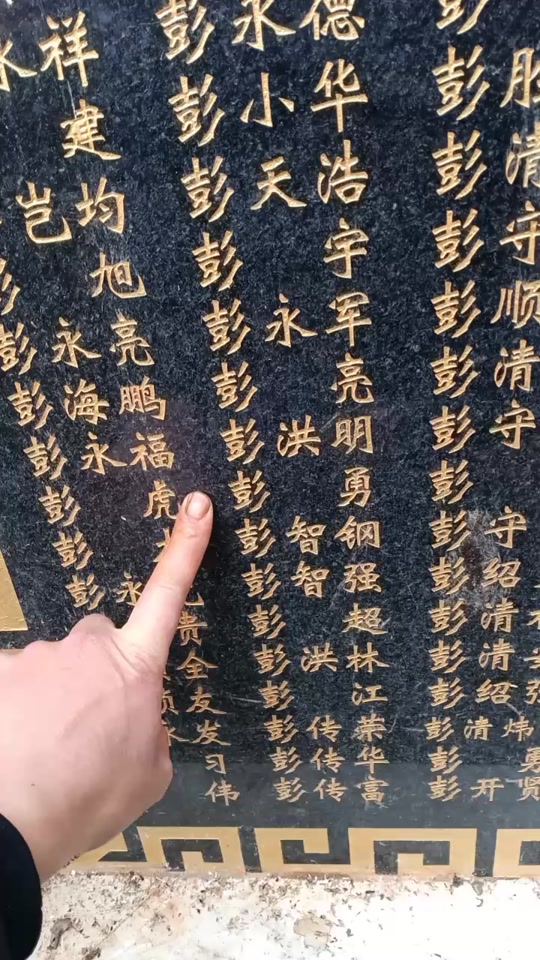 永祥
建
岂均
彭旭
彭永亮
彭海鹏
彭永福
彭虎
彭
彭永
贵
全
友
永发
习
伟
彭永德
彭小华
彭天浩
彭宇
彭永军
彭亮
彭洪明
彭勇
彭智钢
彭智强
彭超
彭洪林
彭江
彭传荣
彭传华
彭传富
彭
彭胜
彭清
彭守
彭顺
彭清
彭守
彭
彭守
彭绍
彭清
彭清
彭绍强
彭清炜
彭勇
彭开贤